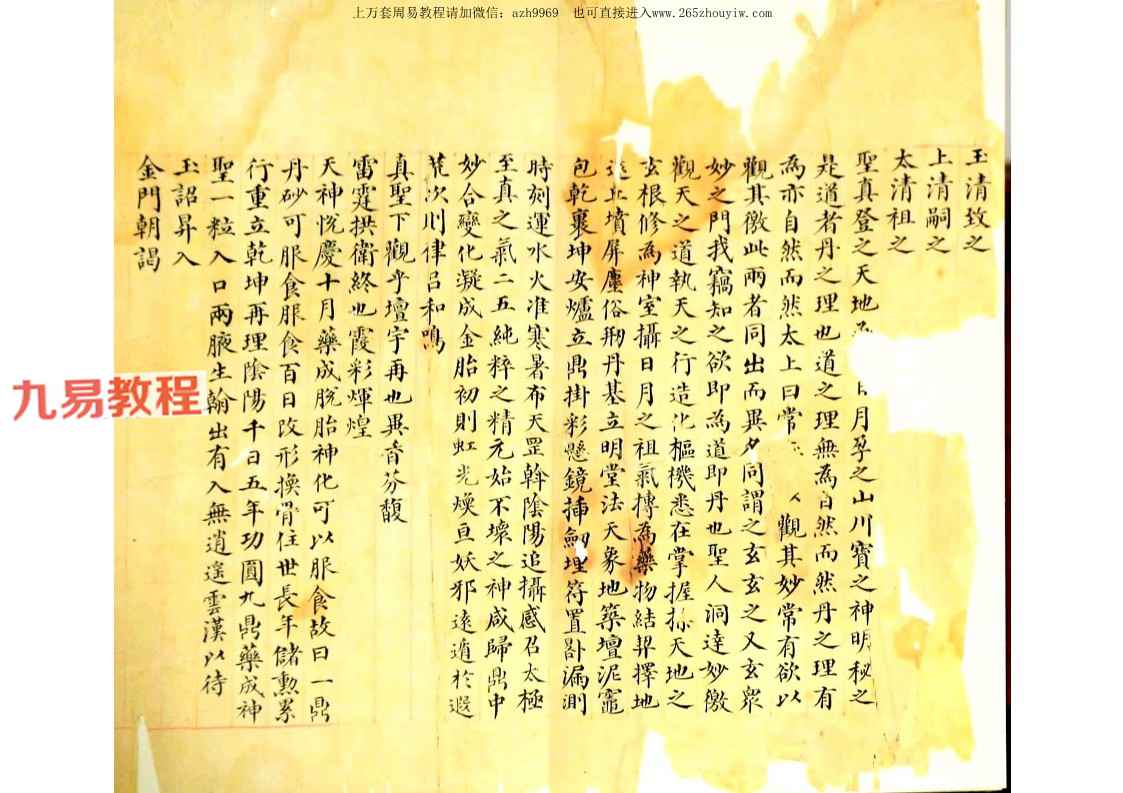 上万套周易教程请加微信：azh9969 也可直接进入www.265zhouyiw.com
玉清致之
上清嗣之
太清祖之
聖真登之天地 月孕之山川寶之神明秘之
是道者丹之理也道之理無為自然而然丹之理有
為亦自然而然太上曰常 觀其妙常有欲以
觀其徼此兩者同出而異 同謂之玄玄之又玄眾
妙之門我竊知之欲即為道即丹也聖人洞達妙徼
觀天之道執天之行造化樞機悉在掌握 天地之
玄根修為神室攝日月之祖氣摶為藥物結 擇地
丘墳屏塵俗 丹基立明堂法天象地築壇泥竈
包乾裹坤安爐立鼎掛彩懸鏡揷劒埋符置 漏測
時刻運水火准寒暑布天罡斡陰陽追攝感召太極
至真之氣二五純粹之精元始不壞之神咸歸鼎中
妙合變化凝成金胎初則虹光煥亘妖邪遠遁於遐
荒次則律吕和鳴
真聖下觀乎壇宇再也異香芬馥
雷霆拱衛終也霞彩煇煌
天神悅慶十月藥成脫胎神化可以服食故曰一鼎
丹砂可服食服食百日改形換骨住世長年儲勲累
行重立乾坤再理陰陽千日五年功圓九鼎藥成神
聖一粒入口兩腋生翰出有入無逍遙雲漢以待
玉詔昇入
金門朝謁
九易教程